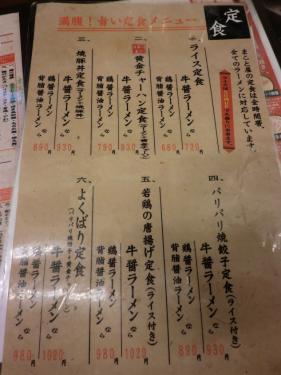 満腹！旨い定食メニュー
定食
まこと屋の定食は全時間帯、
全てのラーメンに対応しています。
一、ライス定食
牛醤ラーメンなら 720円
鶏醤ラーメン
背脂醤油ラーメンなら 680円
二、黄金チャーハン定食
牛醤ラーメンなら 930円
鶏醤ラーメン
背脂醤油ラーメンなら 790円
三、焼豚丼定食
牛醤ラーメンなら 930円
鶏醤ラーメン
背脂醤油ラーメンなら 890円
四、パリパリ焼餃子定食(ライス付き)
牛醤ラーメンなら 930円
鶏醤ラーメン
背脂醤油ラーメンなら 890円
五、若鶏の唐揚げ定食(ライス付き)
牛醤ラーメンなら 1020円
鶏醤ラーメン
背脂醤油ラーメンなら 980円
六、よくばり定食
牛醤ラーメンなら 1020円
鶏醤ラーメン
背脂醤油ラーメンなら 980円